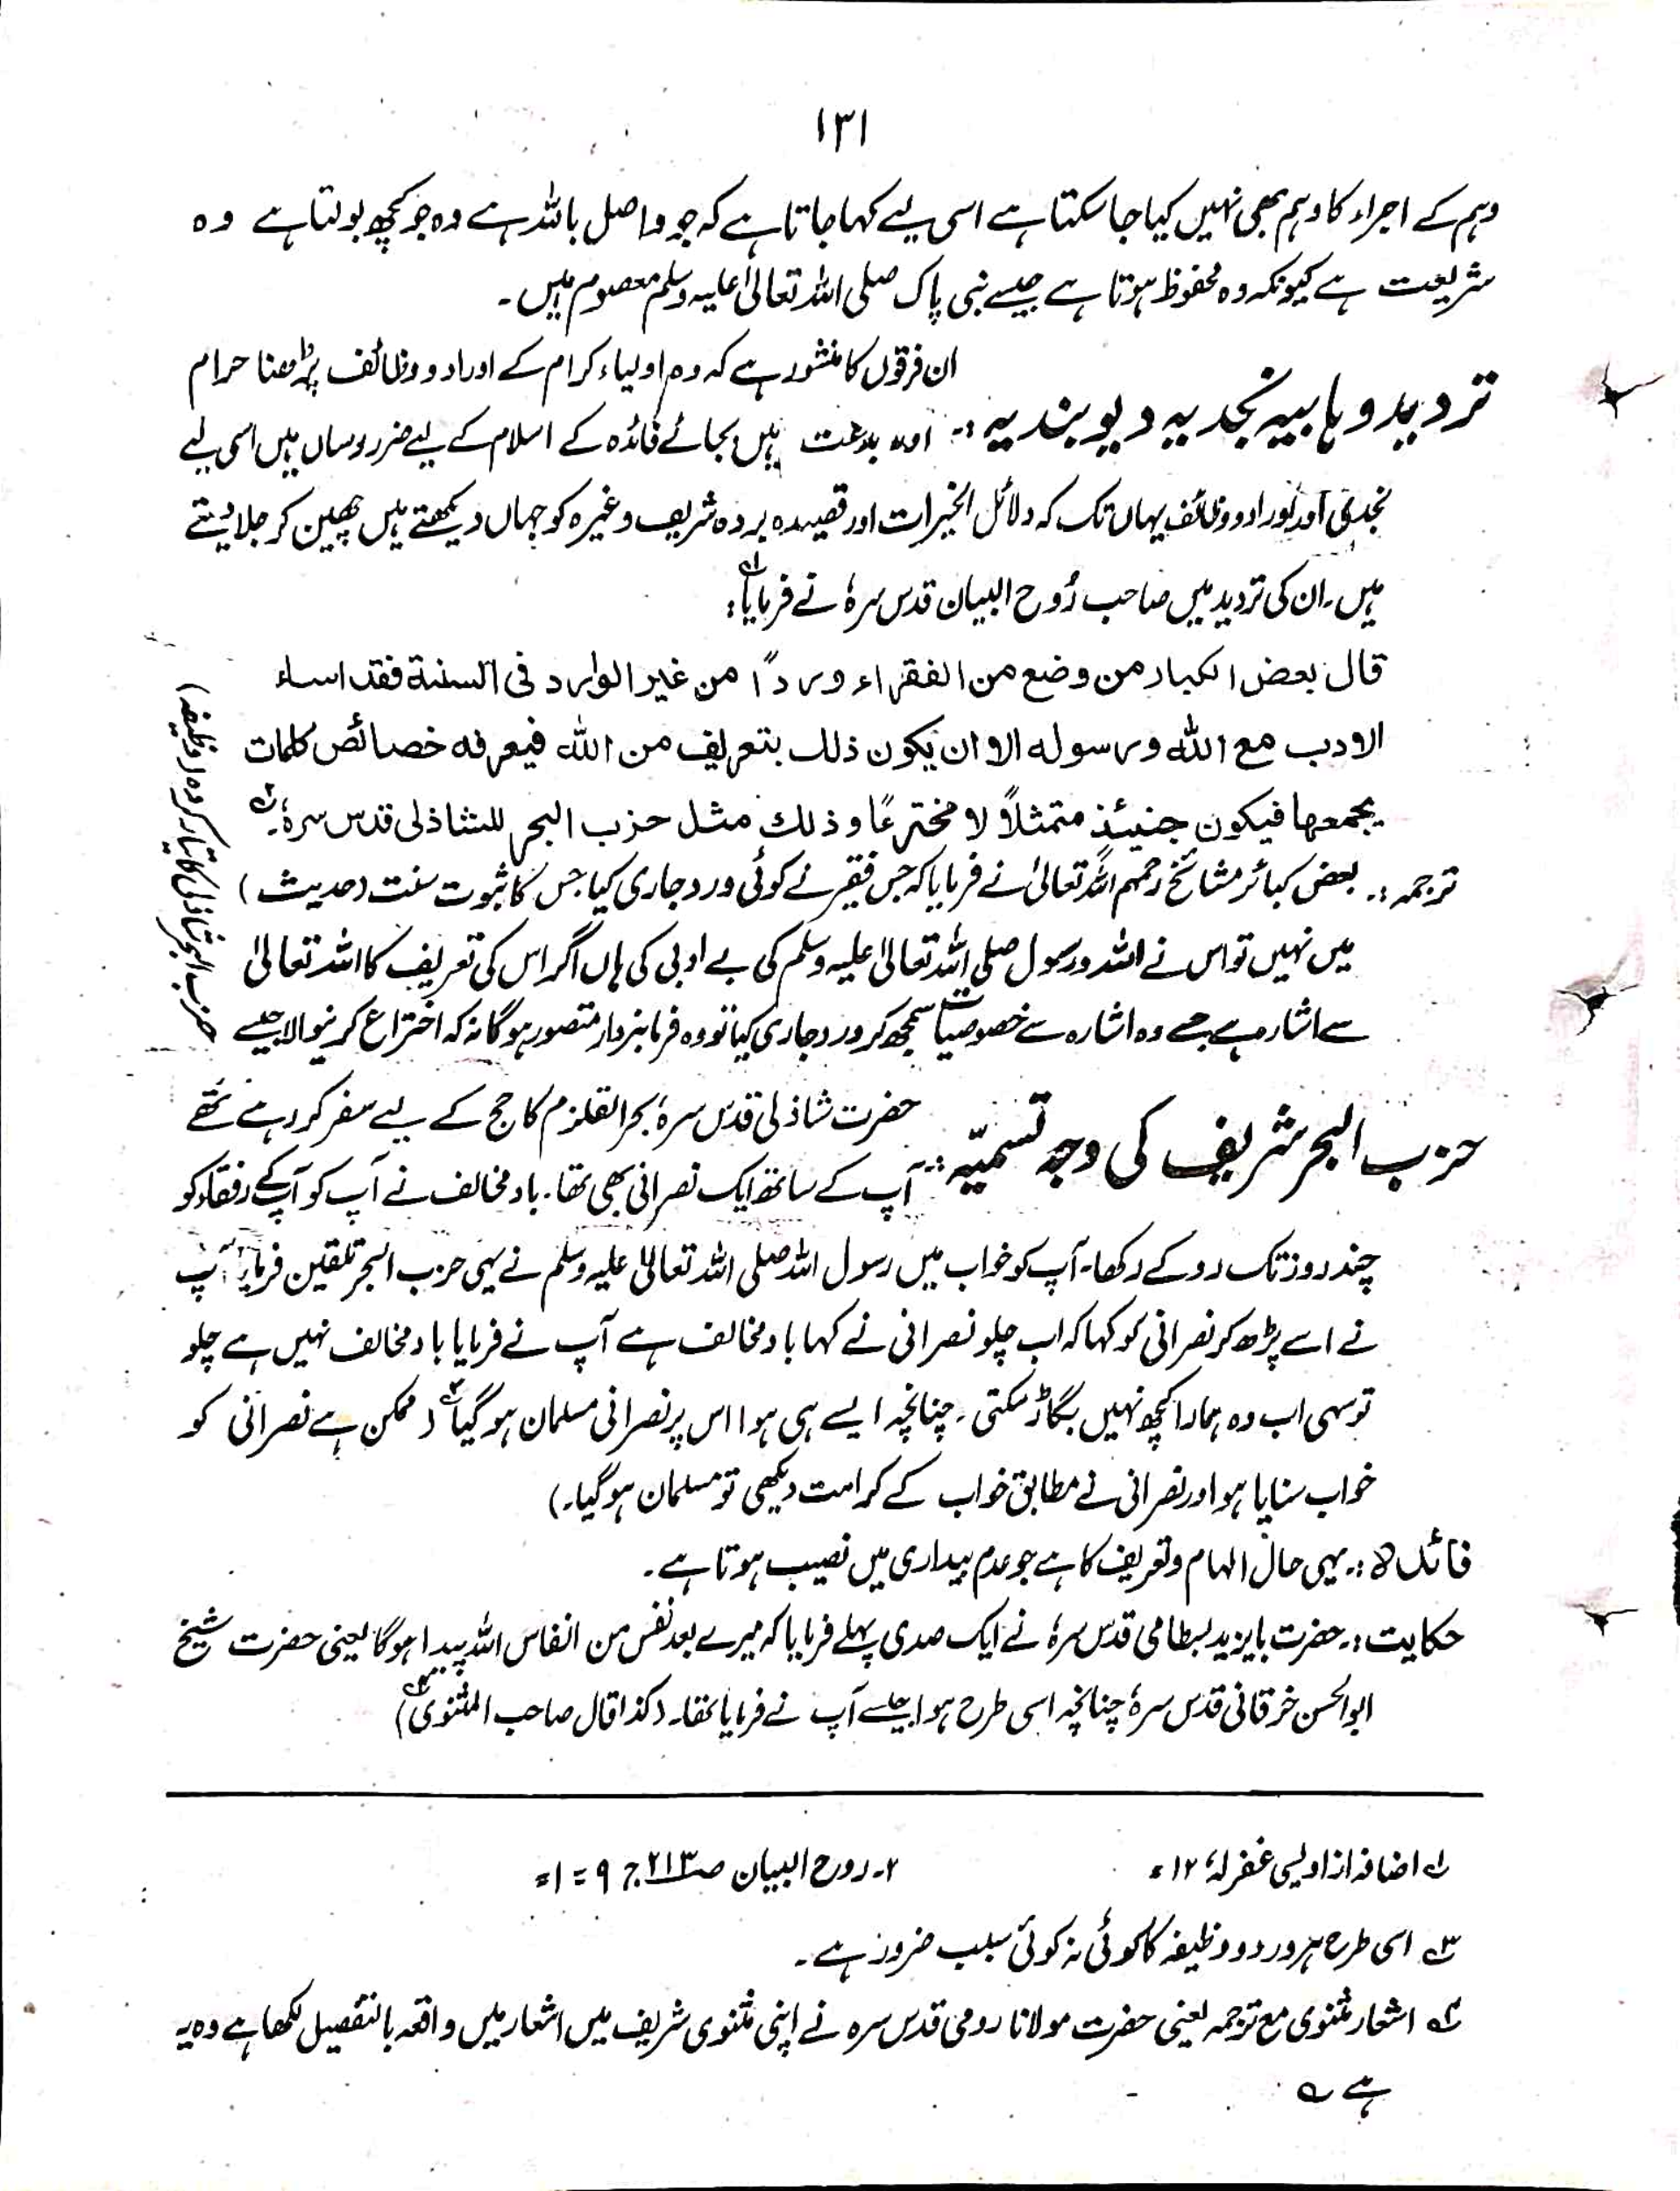 ۱۳۱
وہم کے اجراء کا وہم بھی نہیں کیا جا سکتا ہے اسی لیے کہا جاتا ہے کہ جو واصل باللہ ہے وہ جو کچھ بولتا ہے وہ
شریعت ہے کیونکہ وہ محفوظ ہوتا ہے جیسے نبی پاک صلی اللہ تعالیٰ علیہ وسلم معصوم ہیں۔
تردید وہابیہ نجدیہ دیوبندیہ :۔
ان فرقوں کا منشور ہے کہ وہ اولیاء کرام کے اوراد و وظائف پڑھنا حرام
اور بدعت ہیں بجائے فائدہ کے اسلام کے لیے ضرر رساں ہیں اسی لیے
نجدی اوراد و وظائف یہاں تک کہ دلائل الخیرات اور قصیدہ بردہ شریف وغیرہ کو جہاں دیکھتے ہیں چھین کر جلا دیتے
ہیں۔ ان کی تردید میں صاحب رُوح البیان قدس سرہٗ نے فرمایا؎۱ :
قال بعض الکبار من وضع من الفقراء وردًا من غیر الوارد فی السنة فقد اساء
الادب مع اللّٰہ ورسولہ الا ان یکون ذلك بتعریف من اللّٰہ فیعرفہ خصائص کلمات
یجمعھا فیکون حنیئذٍ متمثلاً لا مخترعًا وذلك مثل حزب البحر للشاذلی قدس سرہٗ۔؎۲
ترجمہ :۔ بعض کبائر مشائخ رحمہم اللہ تعالیٰ نے فرمایا کہ جس فقیر نے کوئی ورد جاری کیا جس کا ثبوت سنت (حدیث )
میں نہیں تو اس نے اللہ و رسول صلی اللہ تعالیٰ علیہ وسلم کی بے ادبی کی ہاں اگر اس کی تعریف کا اللہ تعالیٰ
سے اشارہ ہے جسے وہ اشارہ سے خصوصیات سمجھ کر ورد جاری کیا تو وہ فرمانبردار متصور ہوگا نہ کہ اختراع کرنیوالا جیسے
حزب البحر شاذلی کا تیار کردہ (وظیفہ)
حزب البحر شریف کی وجہ تسمیّہ :۔
حضرت شاذلی قدس سرہٗ بحر القلزم کا حج کے لیے سفر کر رہے تھے
آپ کے ساتھ ایک نصرانی بھی تھا۔ باد مخالف نے آپ کو آپ کے رفقاء کو
چند روز تک روکے رکھا۔ آپ کو خواب میں رسول اللہ صلی اللہ تعالیٰ علیہ وسلم نے یہی حزب البحر تلقین فرمایا آپ
نے اسے پڑھ کر نصرانی کو کہا کہ اب چلو نصرانی نے کہا باد مخالف ہے آپ نے فرمایا باد مخالف نہیں ہے چلو
تو سہی اب وہ ہمارا کچھ نہیں بگاڑ سکتی۔ چنانچہ ایسے ہی ہوا اس پر نصرانی مسلمان ہو گیا؎۳ ( ممکن ہے نصرانی کو
خواب سنایا ہو اور نصرانی نے مطابق خواب کے کرامت دیکھی تو مسلمان ہو گیا۔)
فائدہ :۔ یہی حال الہام و تعریف کا ہے جو عدم بیداری میں نصیب ہوتا ہے۔
حکایت :۔ حضرت بایزید بسطامی قدس سرہٗ نے ایک صدی پہلے فرمایا کہ میرے بعد نفس من انفاس اللہ پیدا ہوگا یعنی حضرت شیخ
ابو الحسن خرقانی قدس سرہٗ چنانچہ اسی طرح ہوا جیسے آپ نے فرمایا تھا۔ (کذا قال صاحب المثنوی؎۴)
؎۱ اضافہ از اویسی غفرلہٗ ۱۲ء
۲۔ روح البیان صـ۲۱۳ ج ۹ = ۱ء
؎۳ اسی طرح ہر ورد و وظیفہ کا کوئی نہ کوئی سبب ضرور ہے۔
؎۴ اشعار مثنوی مع ترجمہ یعنی حضرت مولانا رومی قدس سرہ نے اپنی مثنوی شریف میں اشعار میں واقعہ بالتفصیل لکھا ہے وہ یہ
ہے ؎